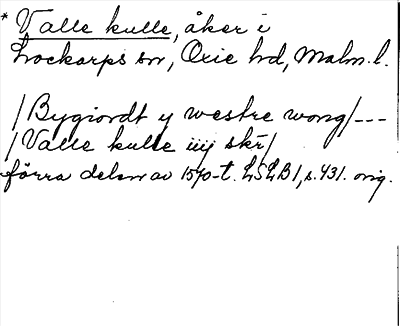 * Valle kulle, åker i
Lockarps sn, Oxie hd, Malm. l.
/Bygiordt y westre wong/---
/Valle kulle iiij skr/
förra delen av 1570-t. LSLB 1, s. 431. orig.